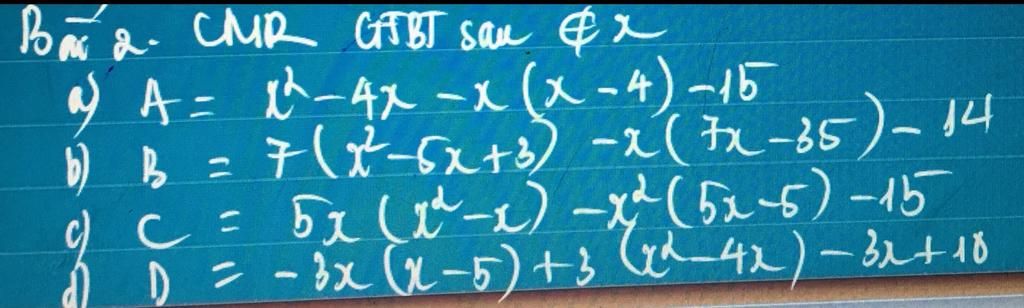 Bài 2. CMR GTBT sau ∉ x
a) A = x² - 4x - x(x - 4) - 15
b) B = 7(x² - 5x + 3) - x(7x - 35) - 14
c) C = 5x(x² - x) - x²(5x - 5) - 15
d) D = -3x(x - 5) + 3(x² - 4x) - 3x + 10